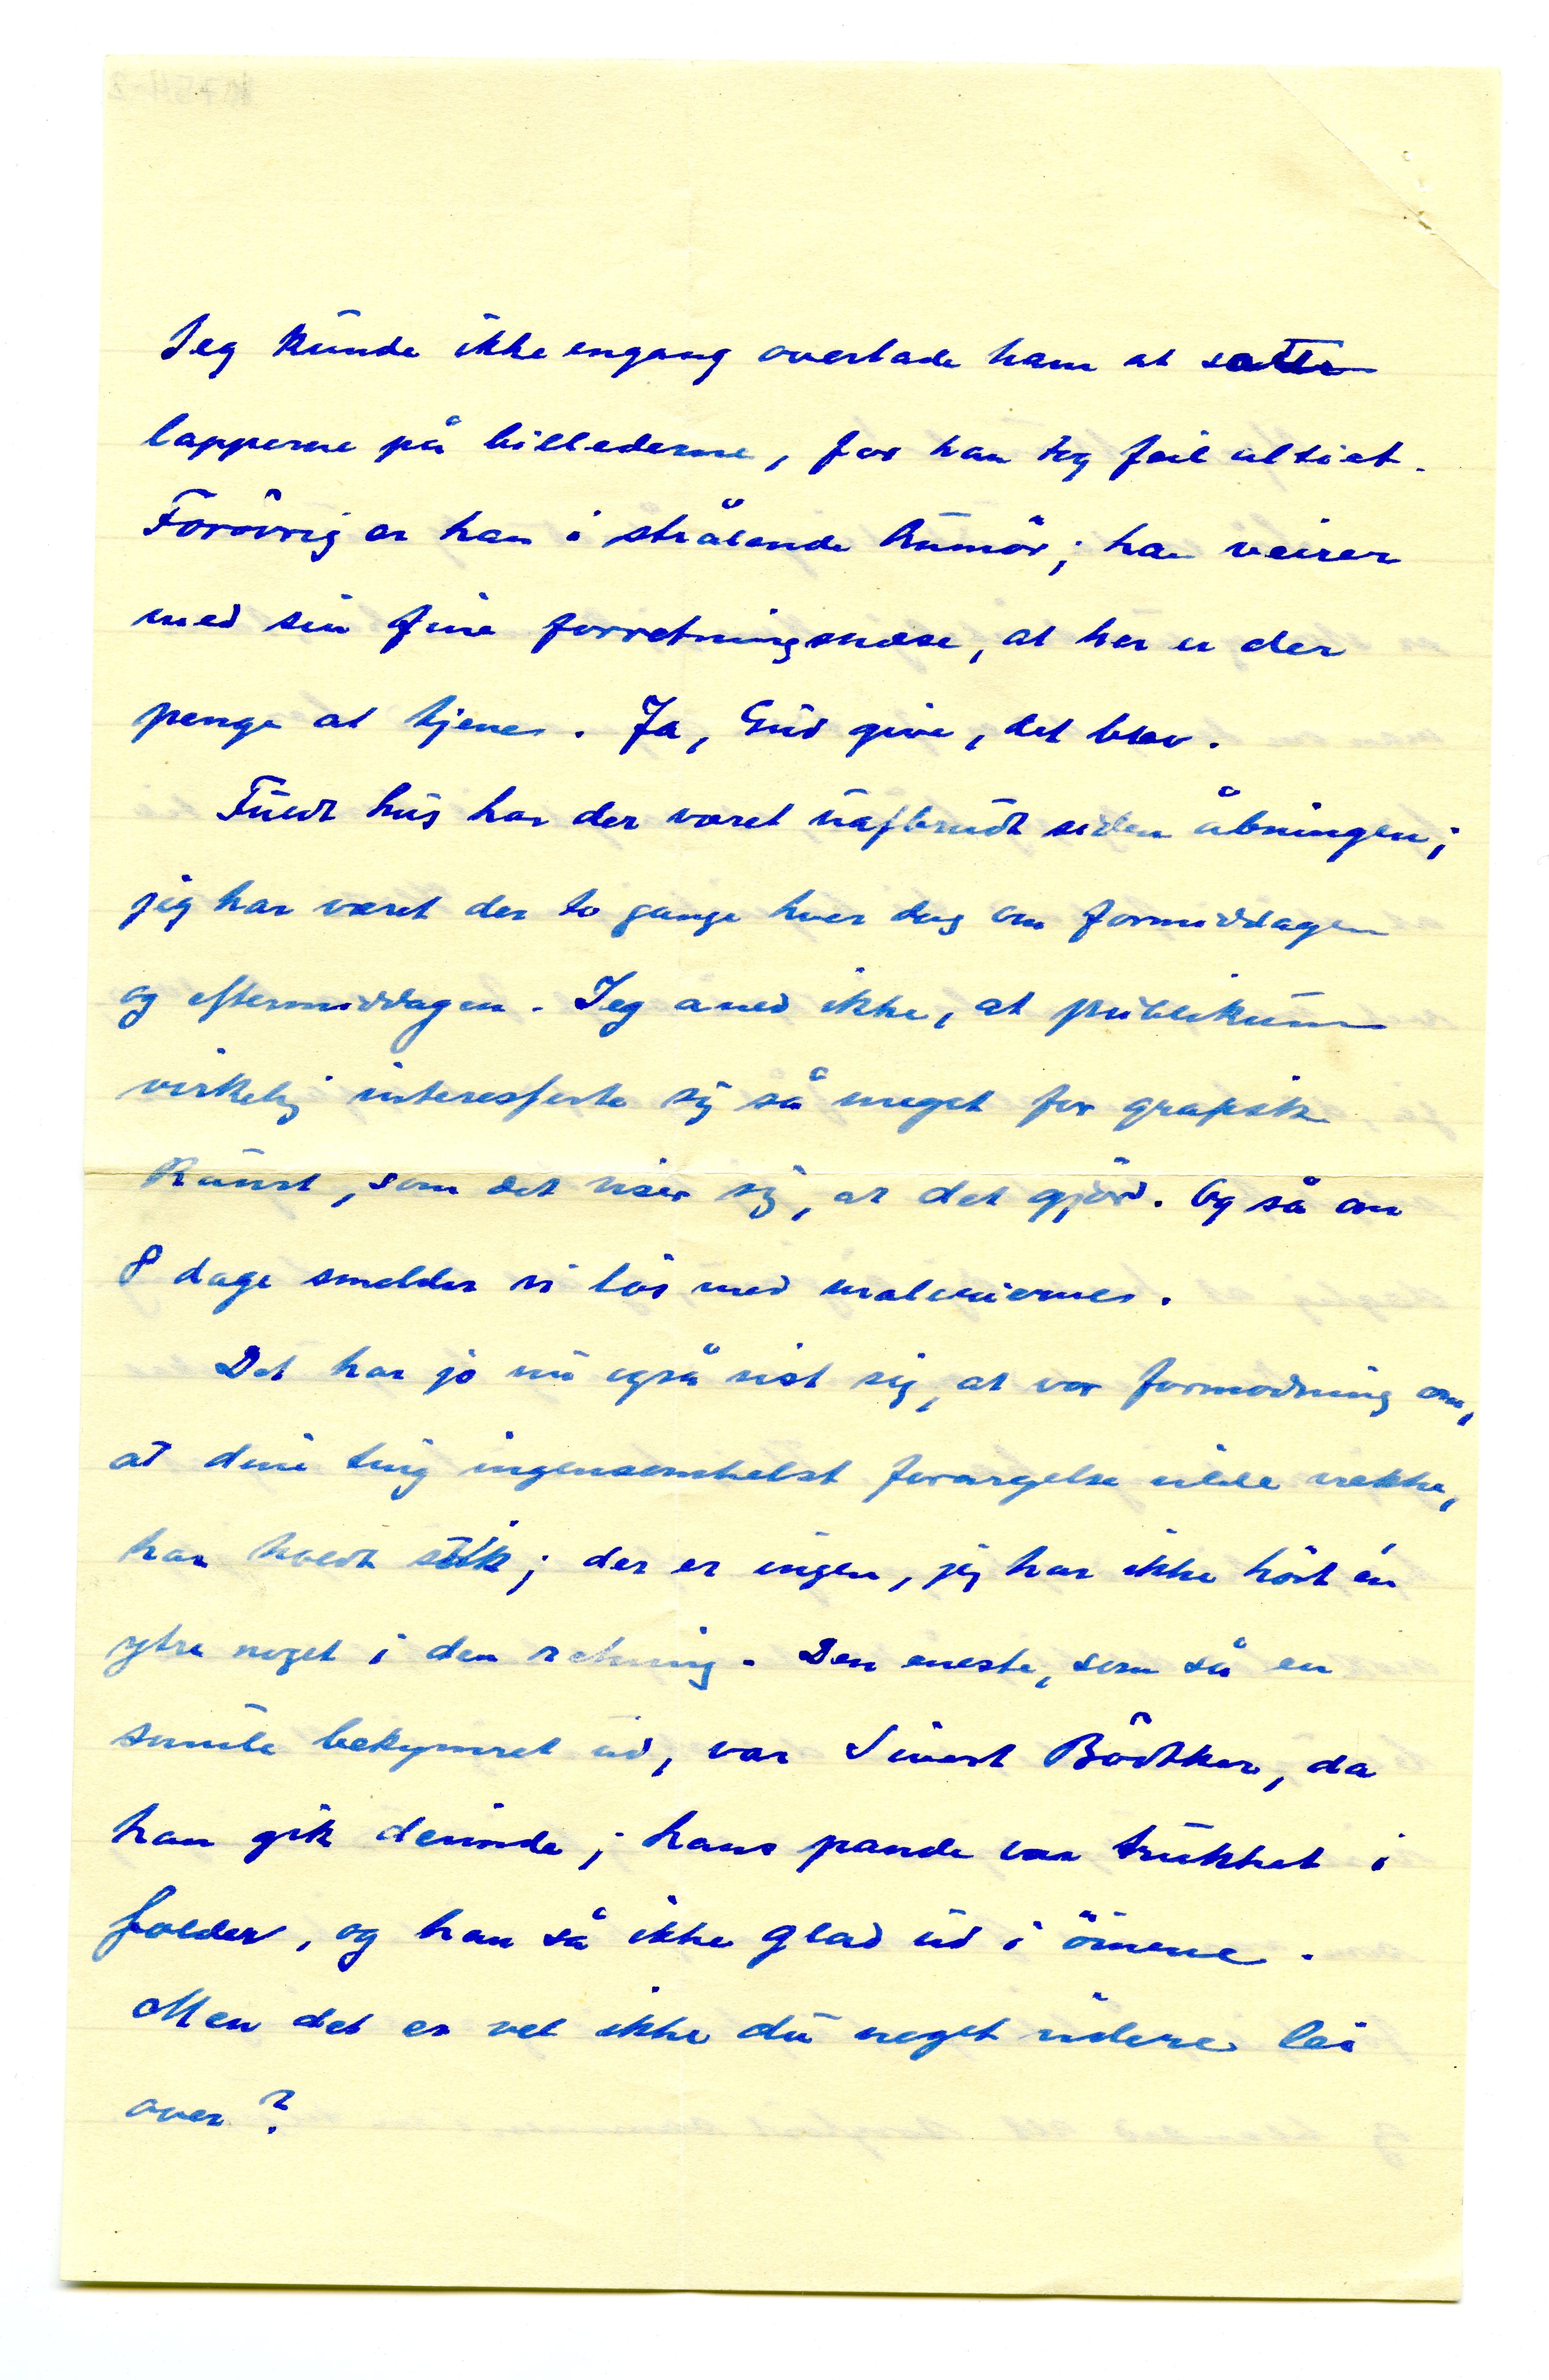 Jeg kunde ikke engang overlade ham at sætte
lapperne på billederne, for han tog feil altiet.
Forövrig er han i strålende humör; han veirer
med sin fine forretningsnæse, at her er der
penge at tjene. Ja, Gud give, det blev.
Fuldt hus har der været uafbrudt siden åbningen;
jeg har været der to gange hver dag om formiddagen
og eftermiddagen. Jeg aned ikke, at publikum
virkelig interesserte sig så meget for grafisk
kunst, som det viser sig, at det gjör. Og så om
8 dage smelder vi lös med malerierne.
Det har jo nu også vist sig, at vor formodning om,
at dine ting ingensomhelst forargelse vilde vække,
har holdt stik; der er ingen, jeg har ikke hört én
ytre noget i den retning. Den eneste, som så en
smule bekymret ud, var Sivert Bödtker, da
han gik derinde; hans pande var trukket i
folder, og han så ikke glad ud i öinene.
Men det er vel ikke du noget videre lei
over?
K754-2